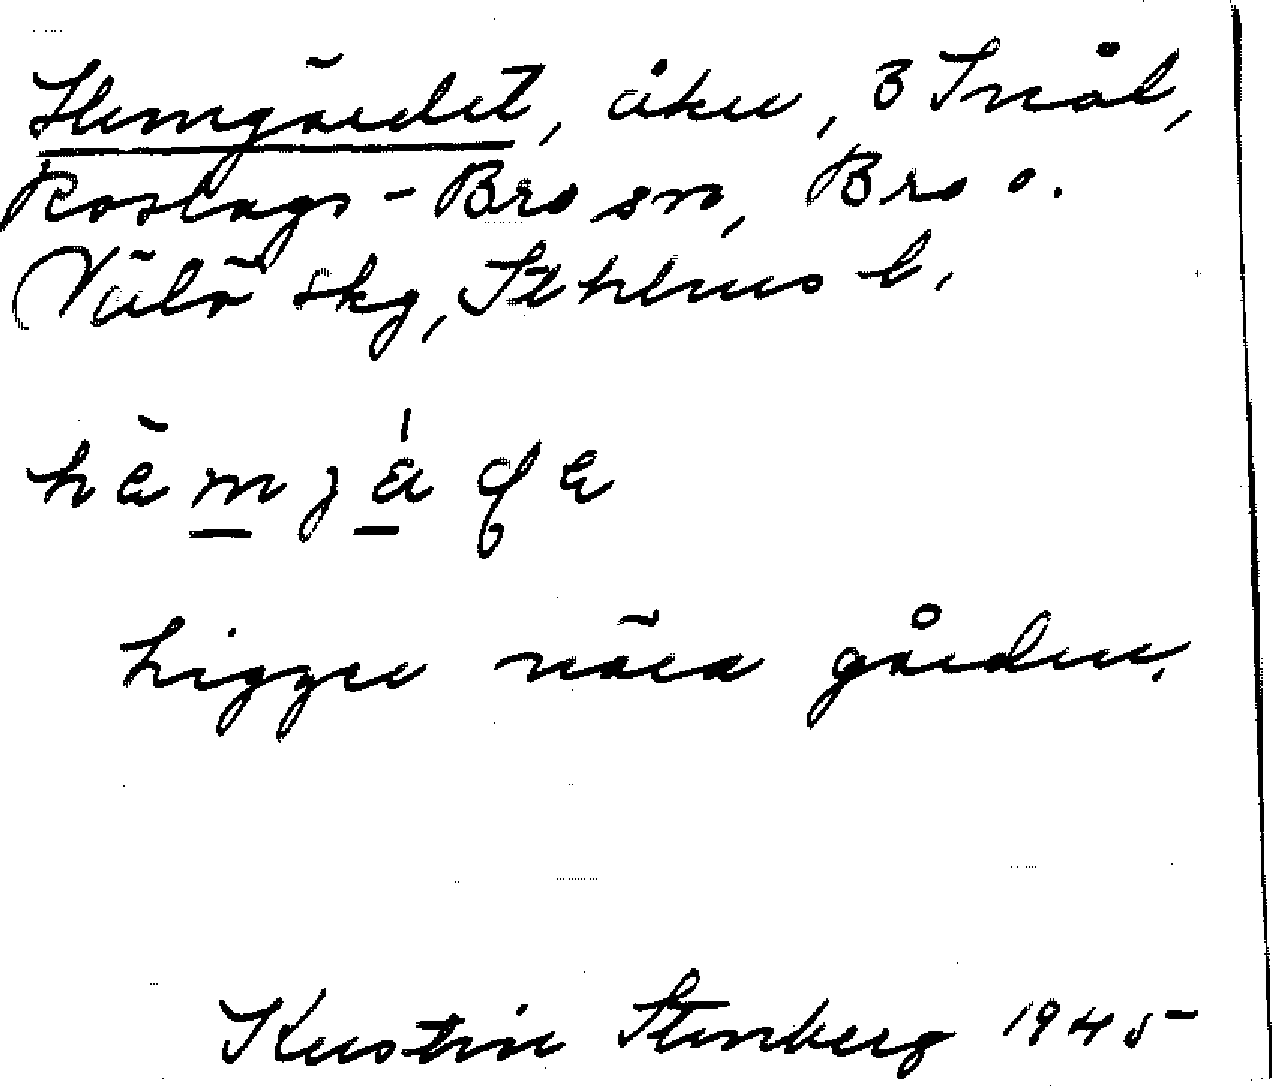 Hemgärdet, åker, 3 Snål,
Roslags-Bro sn, Bro o.
Vätö skg, Sthlms l.
hèmjä́ɖe
Ligger nära gården.
Kerstin Stenberg 1945